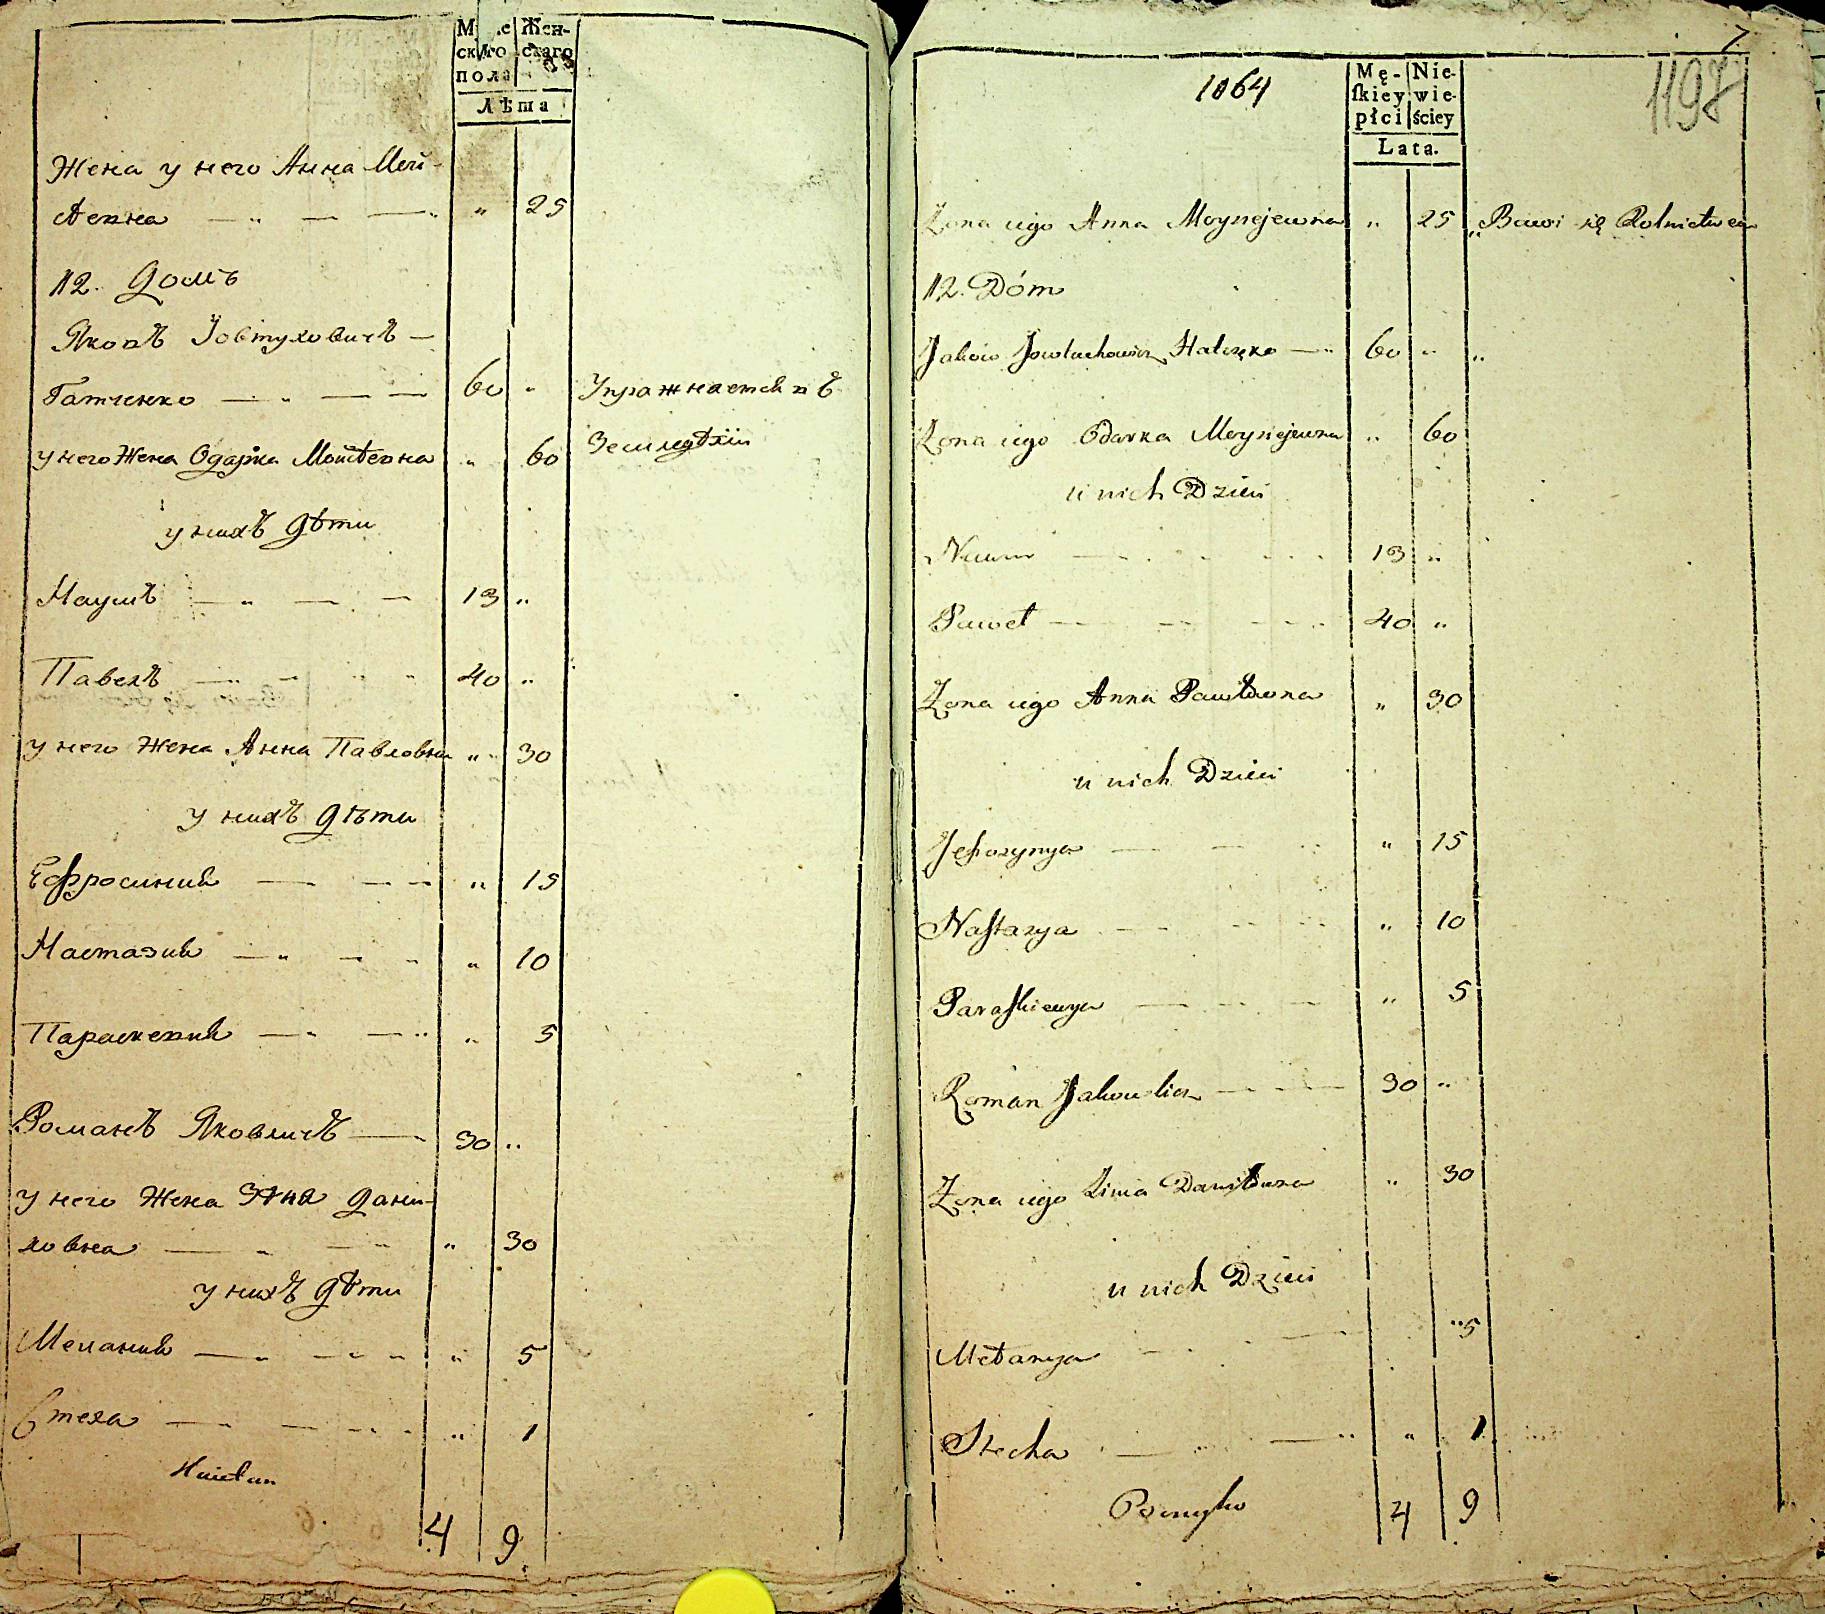 Мужескаго пола
Женскаго
Лѣта
Жена у него Анна Мой-
сеевна — „ — — „ „ 25
12. Домъ
Яковъ Іовтуховичъ —
Гатченко — „ — — 60 „ Упражняется въ
у него Жена Одарка Мойсеевна „ 60 Земледѣліи
у нихъ Дѣти
Наумъ — „ — — 13 „
Павелъ — „ — „ „ 40 „
у него Жена Анна Павловна „ 30
у нихъ Дѣти
Ефросинія — — — „ 15
Настазия — „ — „ „ 10
Параскевия — „ — „ „ 5
Романъ Яковличъ — 30 „
у него Жена Дани-
ловна — „ — „ „ 30
у нихъ Дѣти
Мелания — „ — „ „ „ 5
Стеха — „ — „ „ „ 1
4 9
7
1064
1198
Męskiey płci
Niewieściey
Lata.
Żona iego Anna Moysiejewna „ 25 „ Bawi się Rolnictwem
12. Dóm
Jakow Jowtuchowicz Hatczęko — „ 60 „ „
Żona iego Odarka Moysiejewna „ 60
u nich Dzieci
Naum — „ „ 13 „
Paweł — — — „ 40 „
Żona iego Anna Pawłowna „ 30
u nich Dzieci
Jefrozynya — — „ „ 15
Nastazya — — „ „ 10
Paraskiewya — — — „ 5
Roman Jakowlicz — — 30 „
Żona iego Daniłowna „ 30
u nich Dzieci
Mełanya — „ — „ 5
Stecha — „ — „ „ 1
4 9